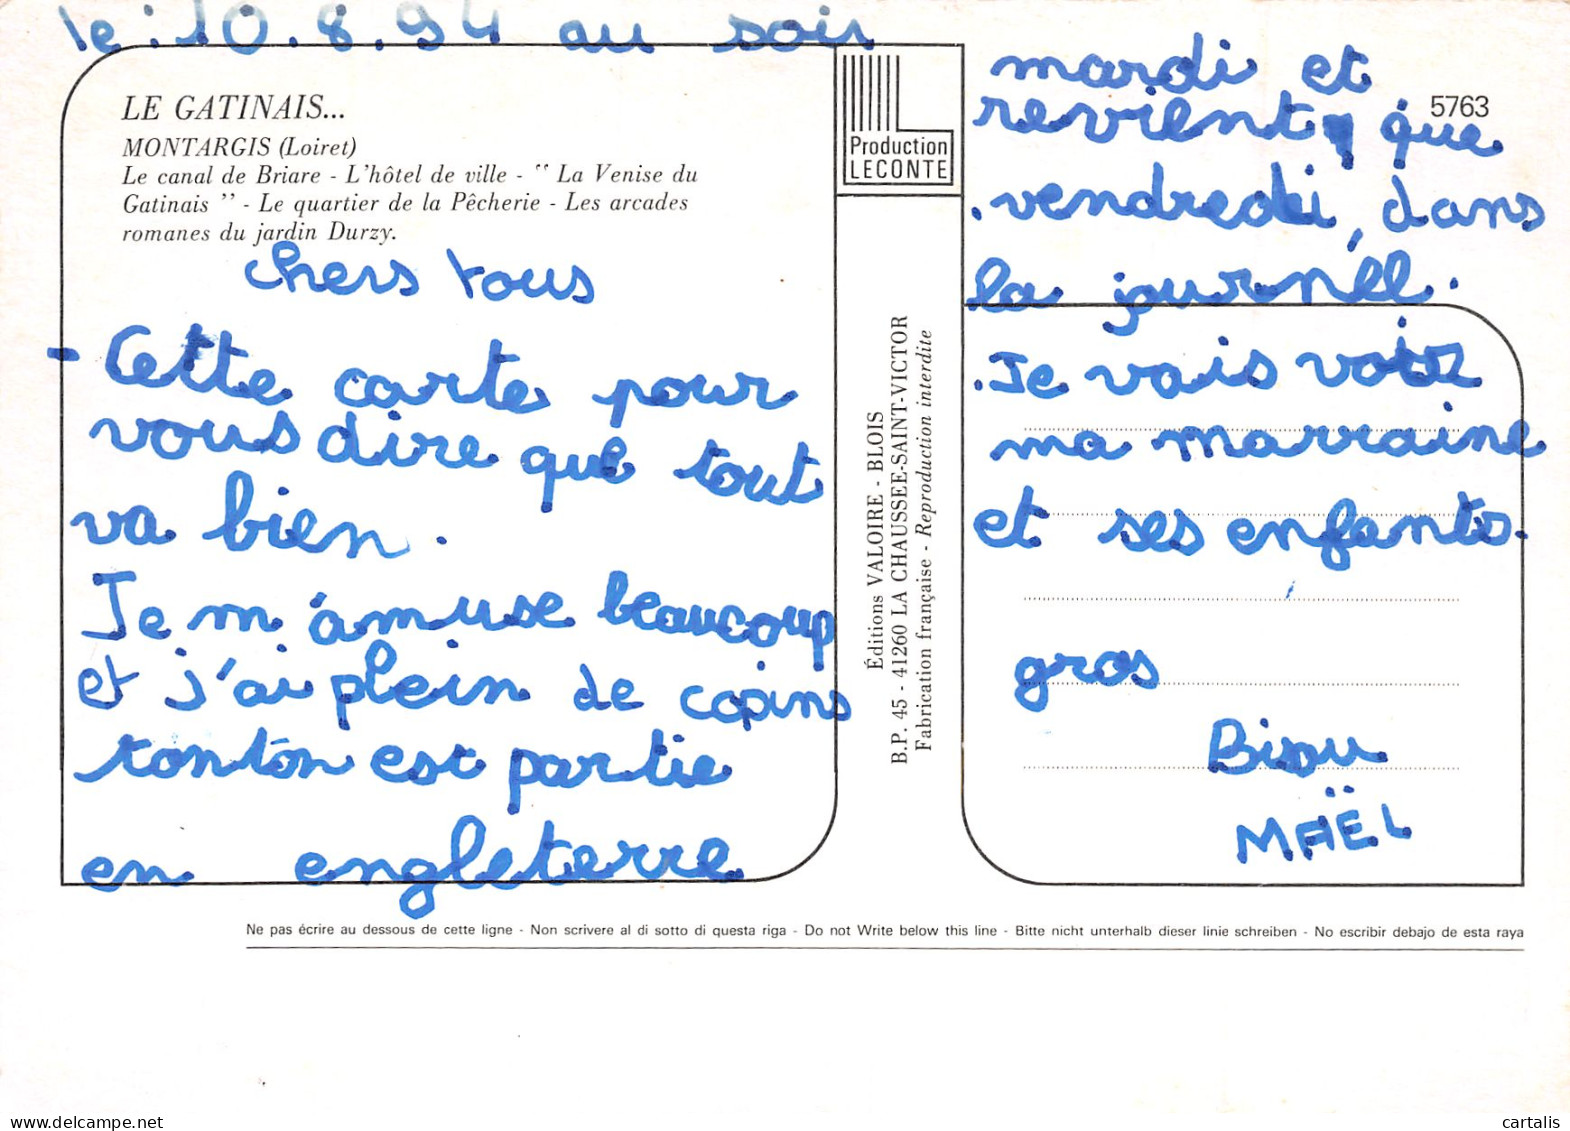 le : 10.8.94 au soir
LE GATINAIS...
MONTARGIS (Loiret)
Le canal de Briare - L'hôtel de ville - " La Venise du
Gatinais " - Le quartier de la Pêcherie - Les arcades
romanes du jardin Durzy.
chers tous
- Cette carte pour
vous dire que tout
va bien.
Je m'amuse beaucoup
et j'ai plein de copins
tonton est partie
en engleterre
Production
LECONTE
Éditions VALOIRE - BLOIS
B.P. 45 - 41260 LA CHAUSSEE-SAINT-VICTOR
Fabrication française - Reproduction interdite
5763
mardi et
revient que
vendredi, dans
la journéé.
Je vais voir
ma marraine
et ses enfants.
gros
Bisou
MAËL
Ne pas écrire au dessous de cette ligne - Non scrivere al di sotto di questa riga - Do not Write below this line - Bitte nicht unterhalb dieser linie schreiben - No escribir debajo de esta raya
delcampe.net
cartalis